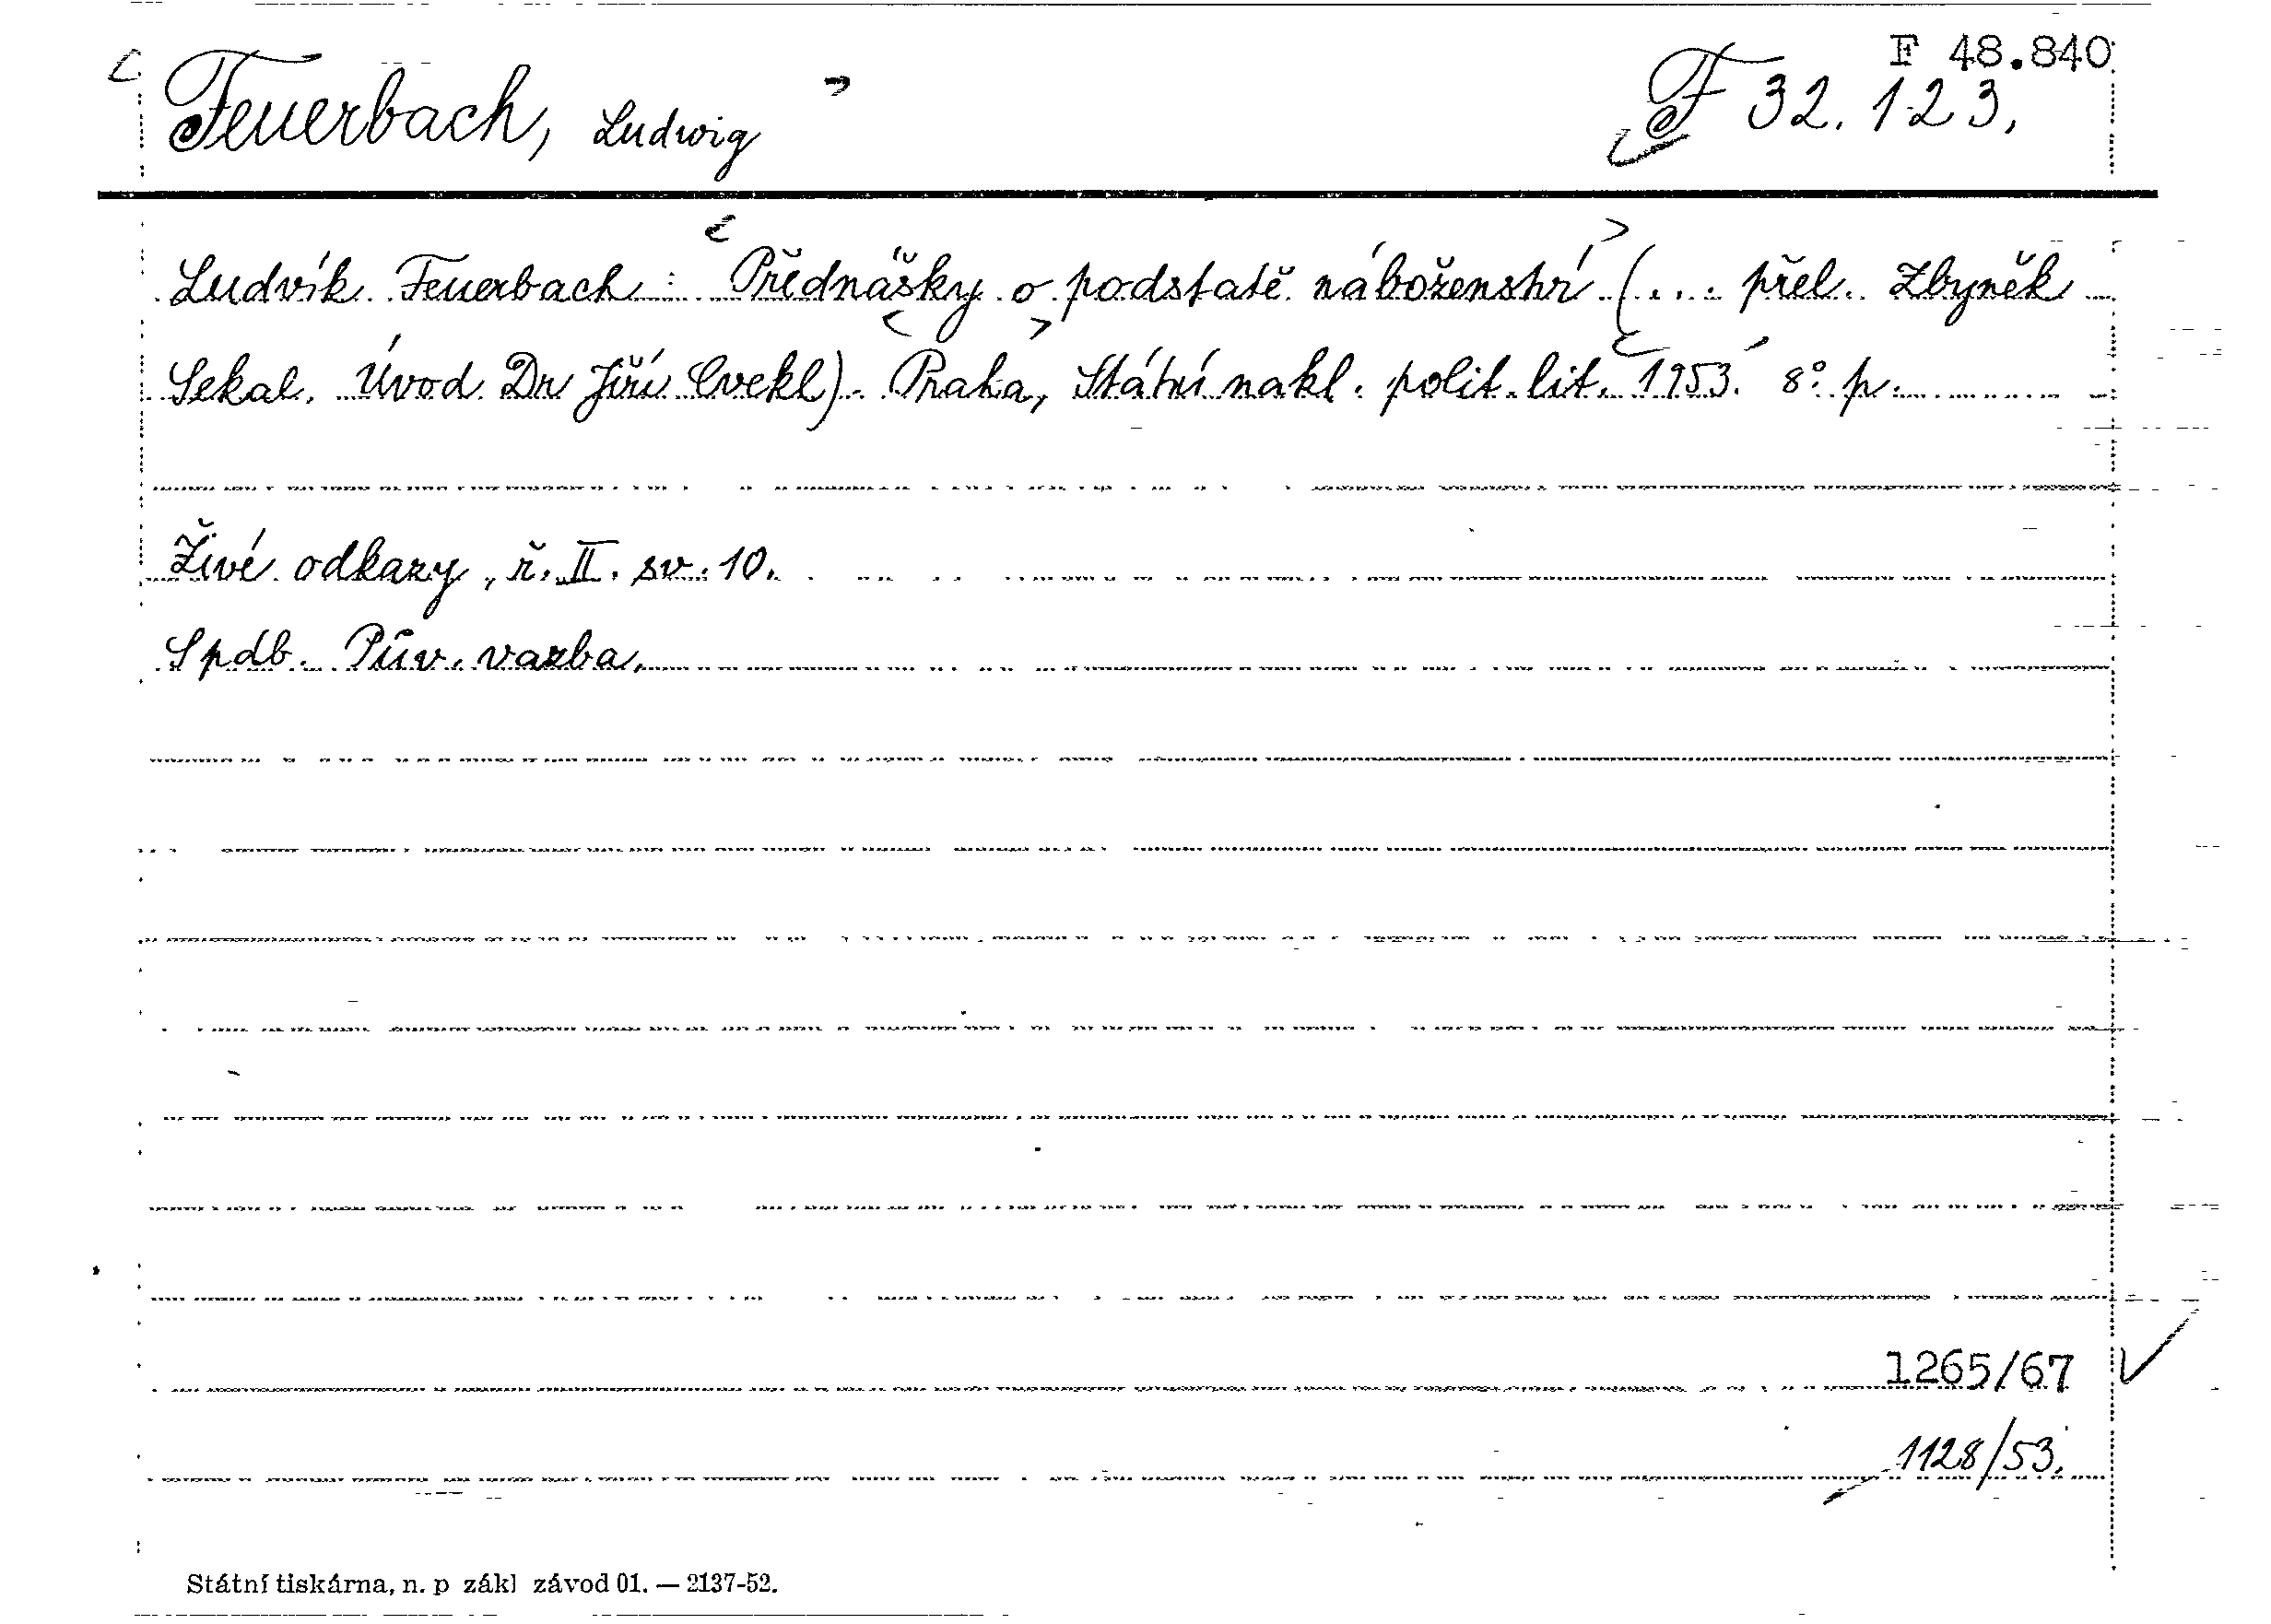 F 48.840
Feuerbach, Ludwig F 32.123,
Ludvík Feuerbach: Přednášky o podstatě náboženství (... přel. Zbyněk
Sekal. Úvod Dr Jiří Cvekl). Praha, Státní nakl. polit. lit. 1953. 8° p.
Živé odkazy, ř. II. sv. 10.
Spdb. Pův. vazba.
1265/67
1128/53.
Státní tiskárna, n. p zákl závod 01. — 2137-52.